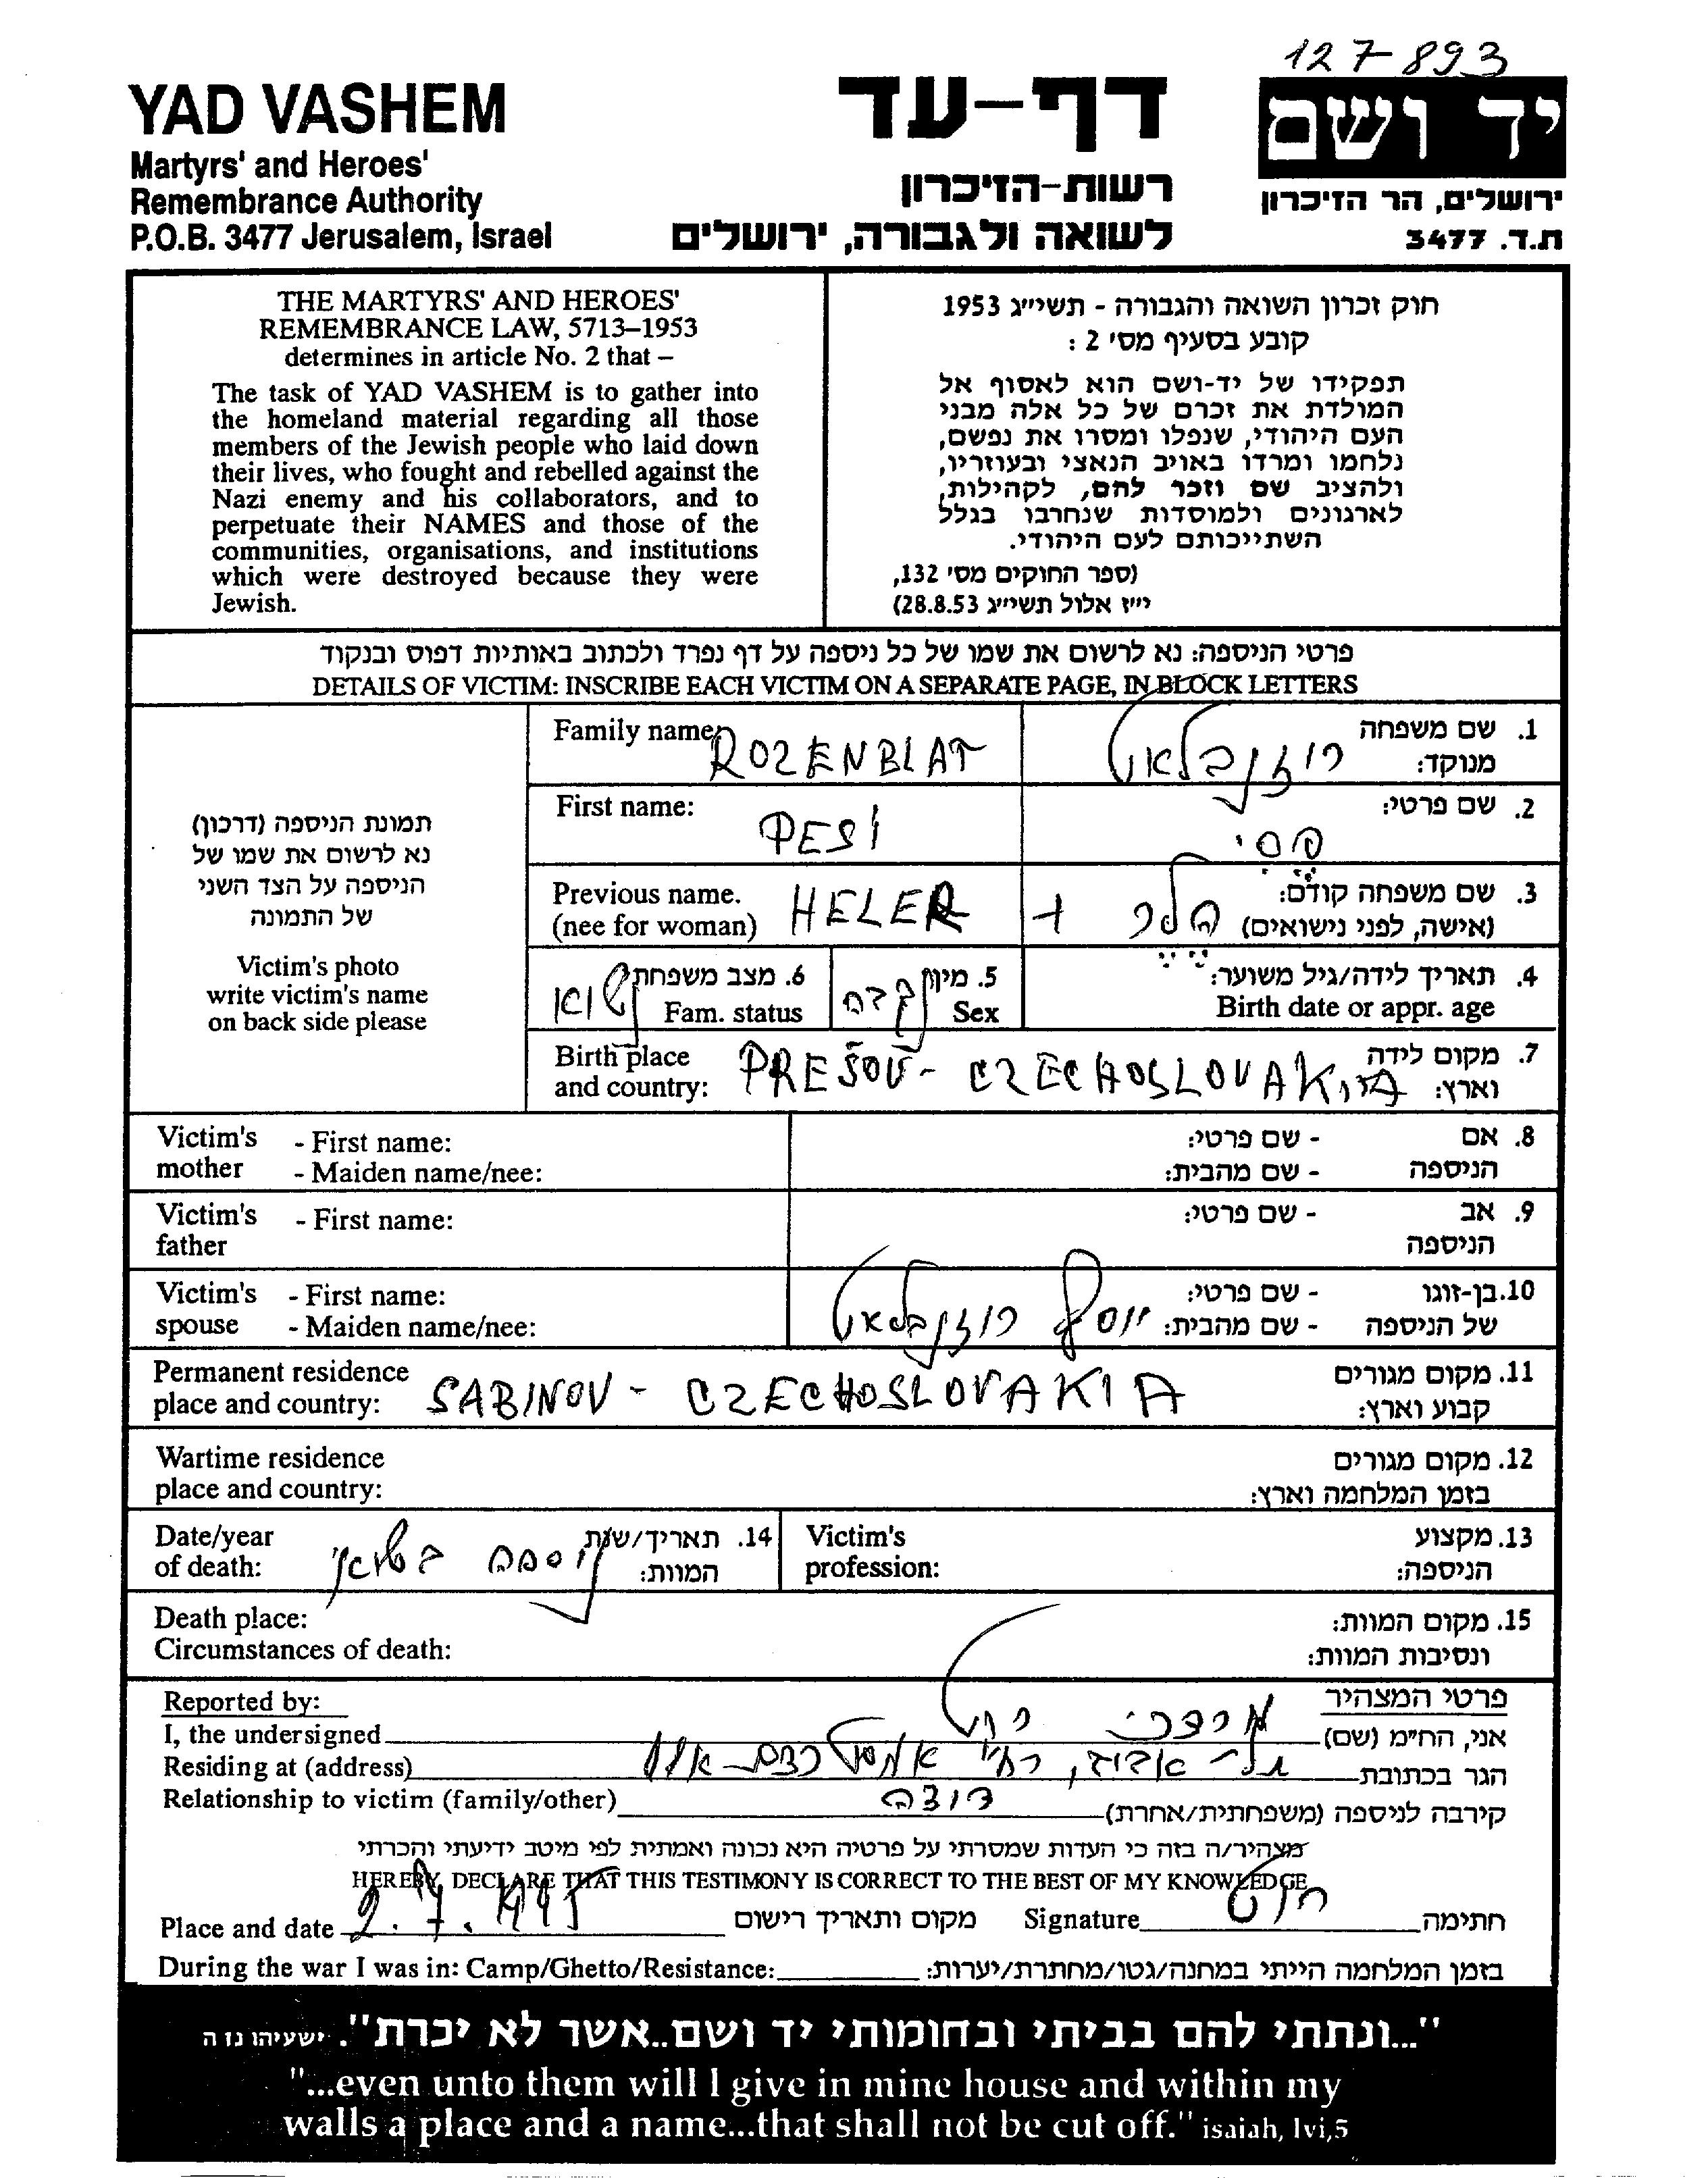 127-893
YAD VASHEM
Martyrs' and Heroes'
Remembrance Authority
P.O.B. 3477 Jerusalem, Israel
דף-עד
רשות-הזיכרון
לשואה ולגבורה, ירושלים
יד ושם
ירושלים, הר הזיכרון
ת.ד. 3477
THE MARTYRS' AND HEROES'
REMEMBRANCE LAW, 5713–1953
determines in article No. 2 that –
The task of YAD VASHEM is to gather into
the homeland material regarding all those
members of the Jewish people who laid down
their lives, who fought and rebelled against the
Nazi enemy and his collaborators, and to
perpetuate their NAMES and those of the
communities, organisations, and institutions
which were destroyed because they were
Jewish.
חוק זכרון השואה והגבורה - תשי״ג 1953
קובע בסעיף מס׳ 2 :
תפקידו של יד-ושם הוא לאסוף אל
המולדת את זכרם של כל אלה מבני
העם היהודי, שנפלו ומסרו את נפשם,
נלחמו ומרדו באויב הנאצי ובעוזריו,
ולהציב שם וזכר להם, לקהילות,
לארגונים ולמוסדות שנחרבו בגלל
השתייכותם לעם היהודי.
(ספר החוקים מס׳ 132,
י״ז אלול תשי״ג 28.8.53)
פרטי הניספה: נא לרשום את שמו של כל ניספה על דף נפרד ולכתוב באותיות דפוס ובנקוד
DETAILS OF VICTIM: INSCRIBE EACH VICTIM ON A SEPARATE PAGE, IN BLOCK LETTERS
תמונת הניספה (דרכון)
נא לרשום את שמו של
הניספה על הצד השני
של התמונה
Victim's photo
write victim's name
on back side please
Family name: ROZENBLAT
1. שם משפחה
מנוקד: רוזנבלאט
First name: PESI
2. שם פרטי: פסי
Previous name. HELER
(nee for woman)
3. שם משפחה קודם:
(אישה, לפני נישואים) הלר +
6. מצב משפחתי נשואי
Fam. status
5. מין נקבה
Sex
4. תאריך לידה/גיל משוער:
Birth date or appr. age
Birth place
and country: PREŠOV - CZECHOSLOVAKIA
7. מקום לידה
וארץ:
Victim's mother - First name:
- Maiden name/nee:
8. אם הניספה - שם פרטי:
- שם מהבית:
Victim's father - First name:
9. אב הניספה - שם פרטי:
Victim's spouse - First name:
- Maiden name/nee:
10. בן-זוגו של הניספה - שם פרטי:
- שם מהבית: יוסף רוזנבלאט
Permanent residence
place and country: SABINOV - CZECHOSLOVAKIA
11. מקום מגורים
קבוע וארץ:
Wartime residence
place and country:
12. מקום מגורים
בזמן המלחמה וארץ:
Date/year
of death:
14. תאריך/שנת
המוות: נספה בשואה
Victim's
profession:
13. מקצוע
הניספה:
Death place:
Circumstances of death:
15. מקום המוות:
ונסיבות המוות:
Reported by:
פרטי המצהיר
I, the undersigned
אני, הח״מ (שם) מרדכי
Residing at (address)
הגר בכתובת תל-אביב, רח׳
Relationship to victim (family/other)
קירבה לניספה (משפחתית/אחרת) דודה
מצהיר/ה בזה כי העדות שמסרתי על פרטיה היא נכונה ואמתית לפי מיטב ידיעתי והכרתי
HEREBY DECLARE THAT THIS TESTIMONY IS CORRECT TO THE BEST OF MY KNOWLEDGE
Place and date 2.7.1995 מקום ותאריך רישום Signature חתימה
During the war I was in: Camp/Ghetto/Resistance: בזמן המלחמה הייתי במחנה/גטו/מחתרת/יערות:
"...ונתתי להם בביתי ובחומותי יד ושם..אשר לא יכרת". ישעיהו נו ה
"...even unto them will I give in mine house and within my
walls a place and a name...that shall not be cut off." isaiah, lvi,5